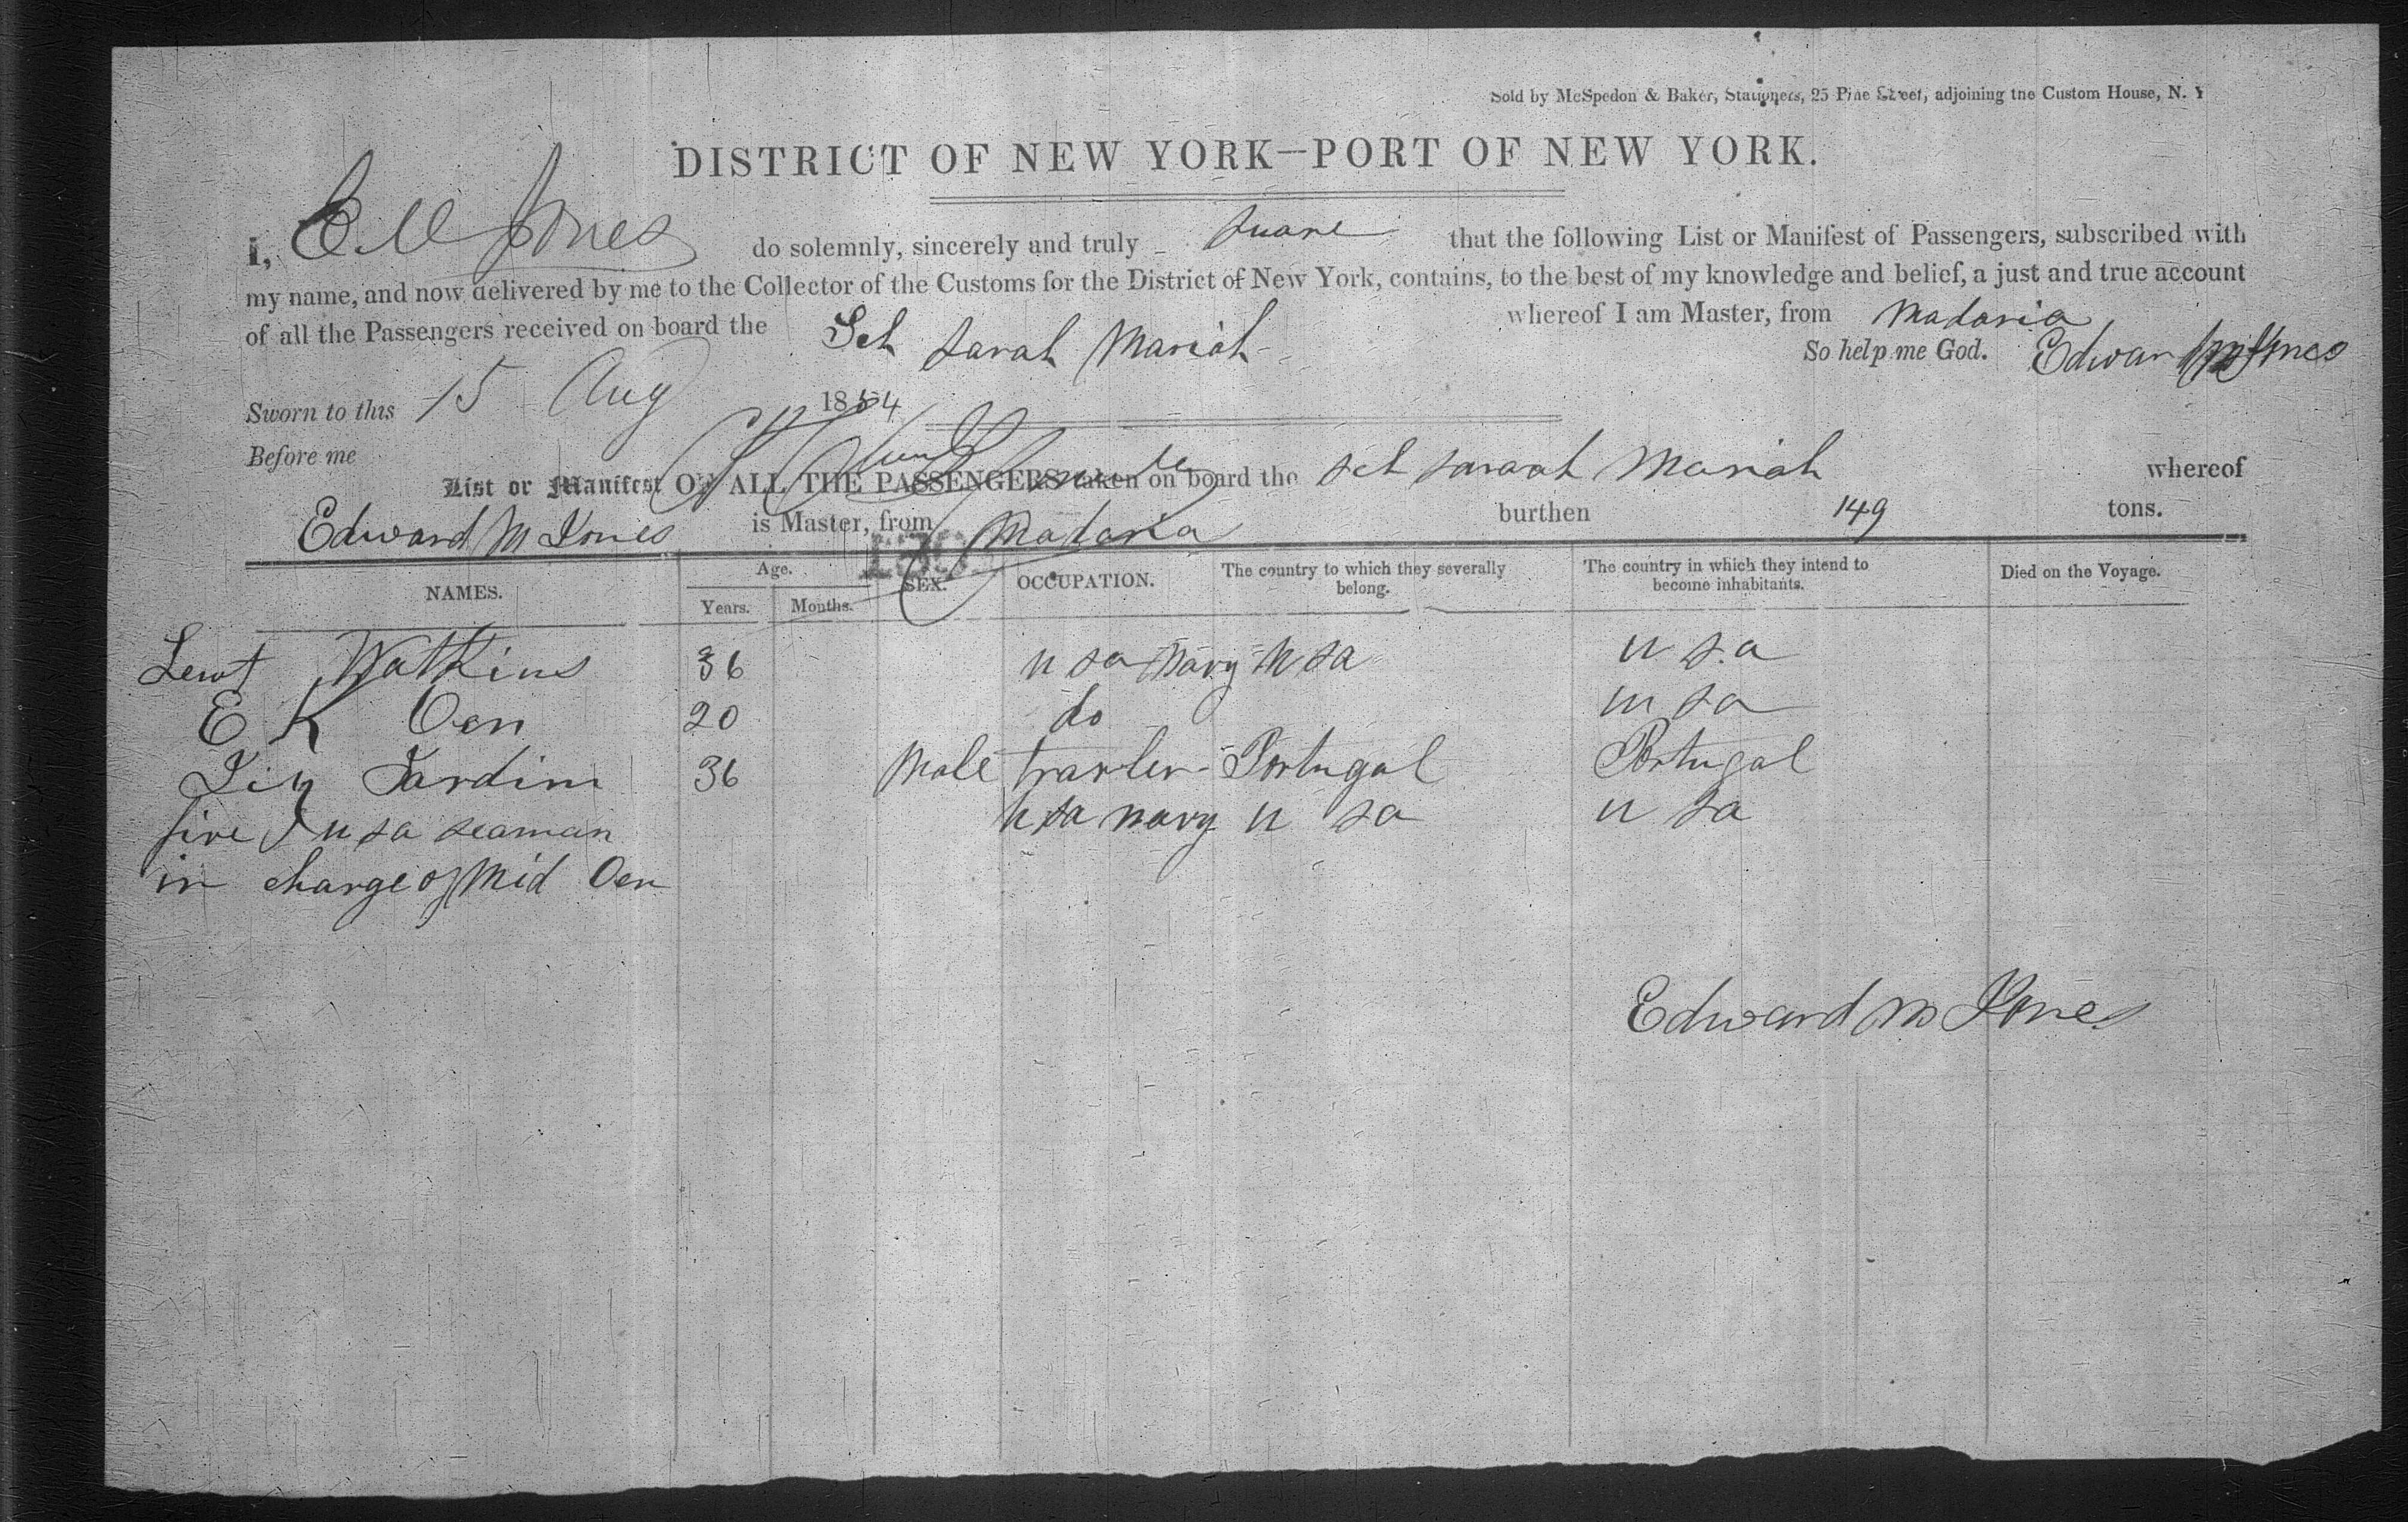 Sold by McSpedon & Baker, Stationers, 25 Pine Street, adjoining the Custom House, N. Y
DISTRICT OF NEW YORK—PORT OF NEW YORK.
I, E M Jones do solemnly, sincerely and truly suare that the following List or Manifest of Passengers, subscribed with
my name, and now delivered by me to the Collector of the Customs for the District of New York, contains, to the best of my knowledge and belief, a just and true account
of all the Passengers received on board the Sch Sarah Mariah whereof I am Master, from Madaria
So help me God. Edward M Jones
Sworn to this 15 Aug 1854
Before me
List or Manifest OF ALL THE PASSENGERS taken on board the Sch Saraah Mariah whereof
Edward M Jones is Master, from Madaria burthen 149 tons.
NAMES. Age. Years. Months. SEX. OCCUPATION. The country to which they severally belong. The country in which they intend to become inhabitants. Died on the Voyage.
Lewt Watkins 36 u sa Navy u sa u s a
E K Oen 20 do u sa
Jardim 36 Male travler Portugal Portugal
five u sa seaman u sa navy u sa u sa
in charge of Mid Oen
Edward M Jones